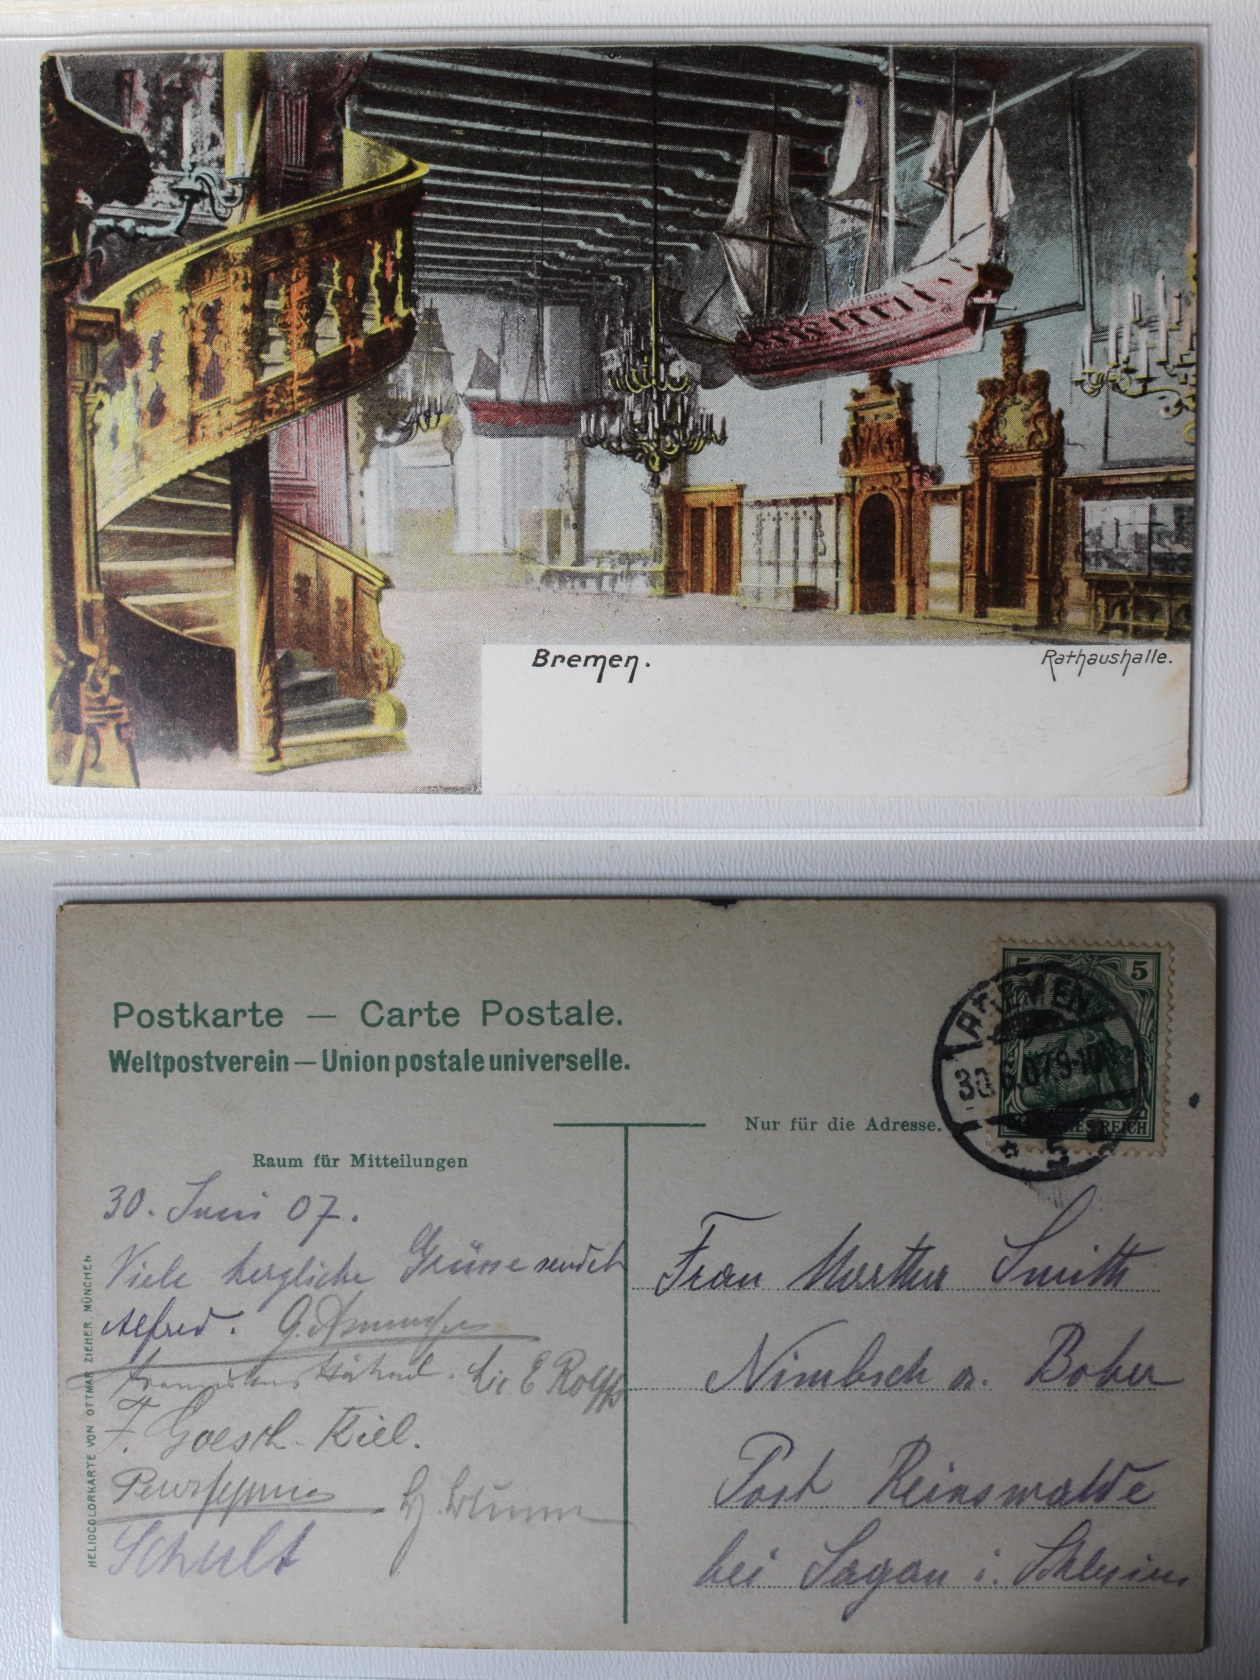 Bremen.
Rathaushalle.
Postkarte — Carte Postale.
Weltpostverein — Union postale universelle.
5 5
DEUTSCHES REICH
BREMEN
30.6.07.9-10
* 5
Nur für die Adresse.
Raum für Mitteilungen
30. Juni 07.
Viele herzliche Grüsse sendet
Alfred.
E Rolffs
F. Goesch. Kiel.
Schult
HELIOCOLORKARTE VON OTTMAR ZIEHER, MÜNCHEN
Frau Martha Smith
Nimbsch a. Bober
Post Reinswalde
bei Sagan i. Schlesien